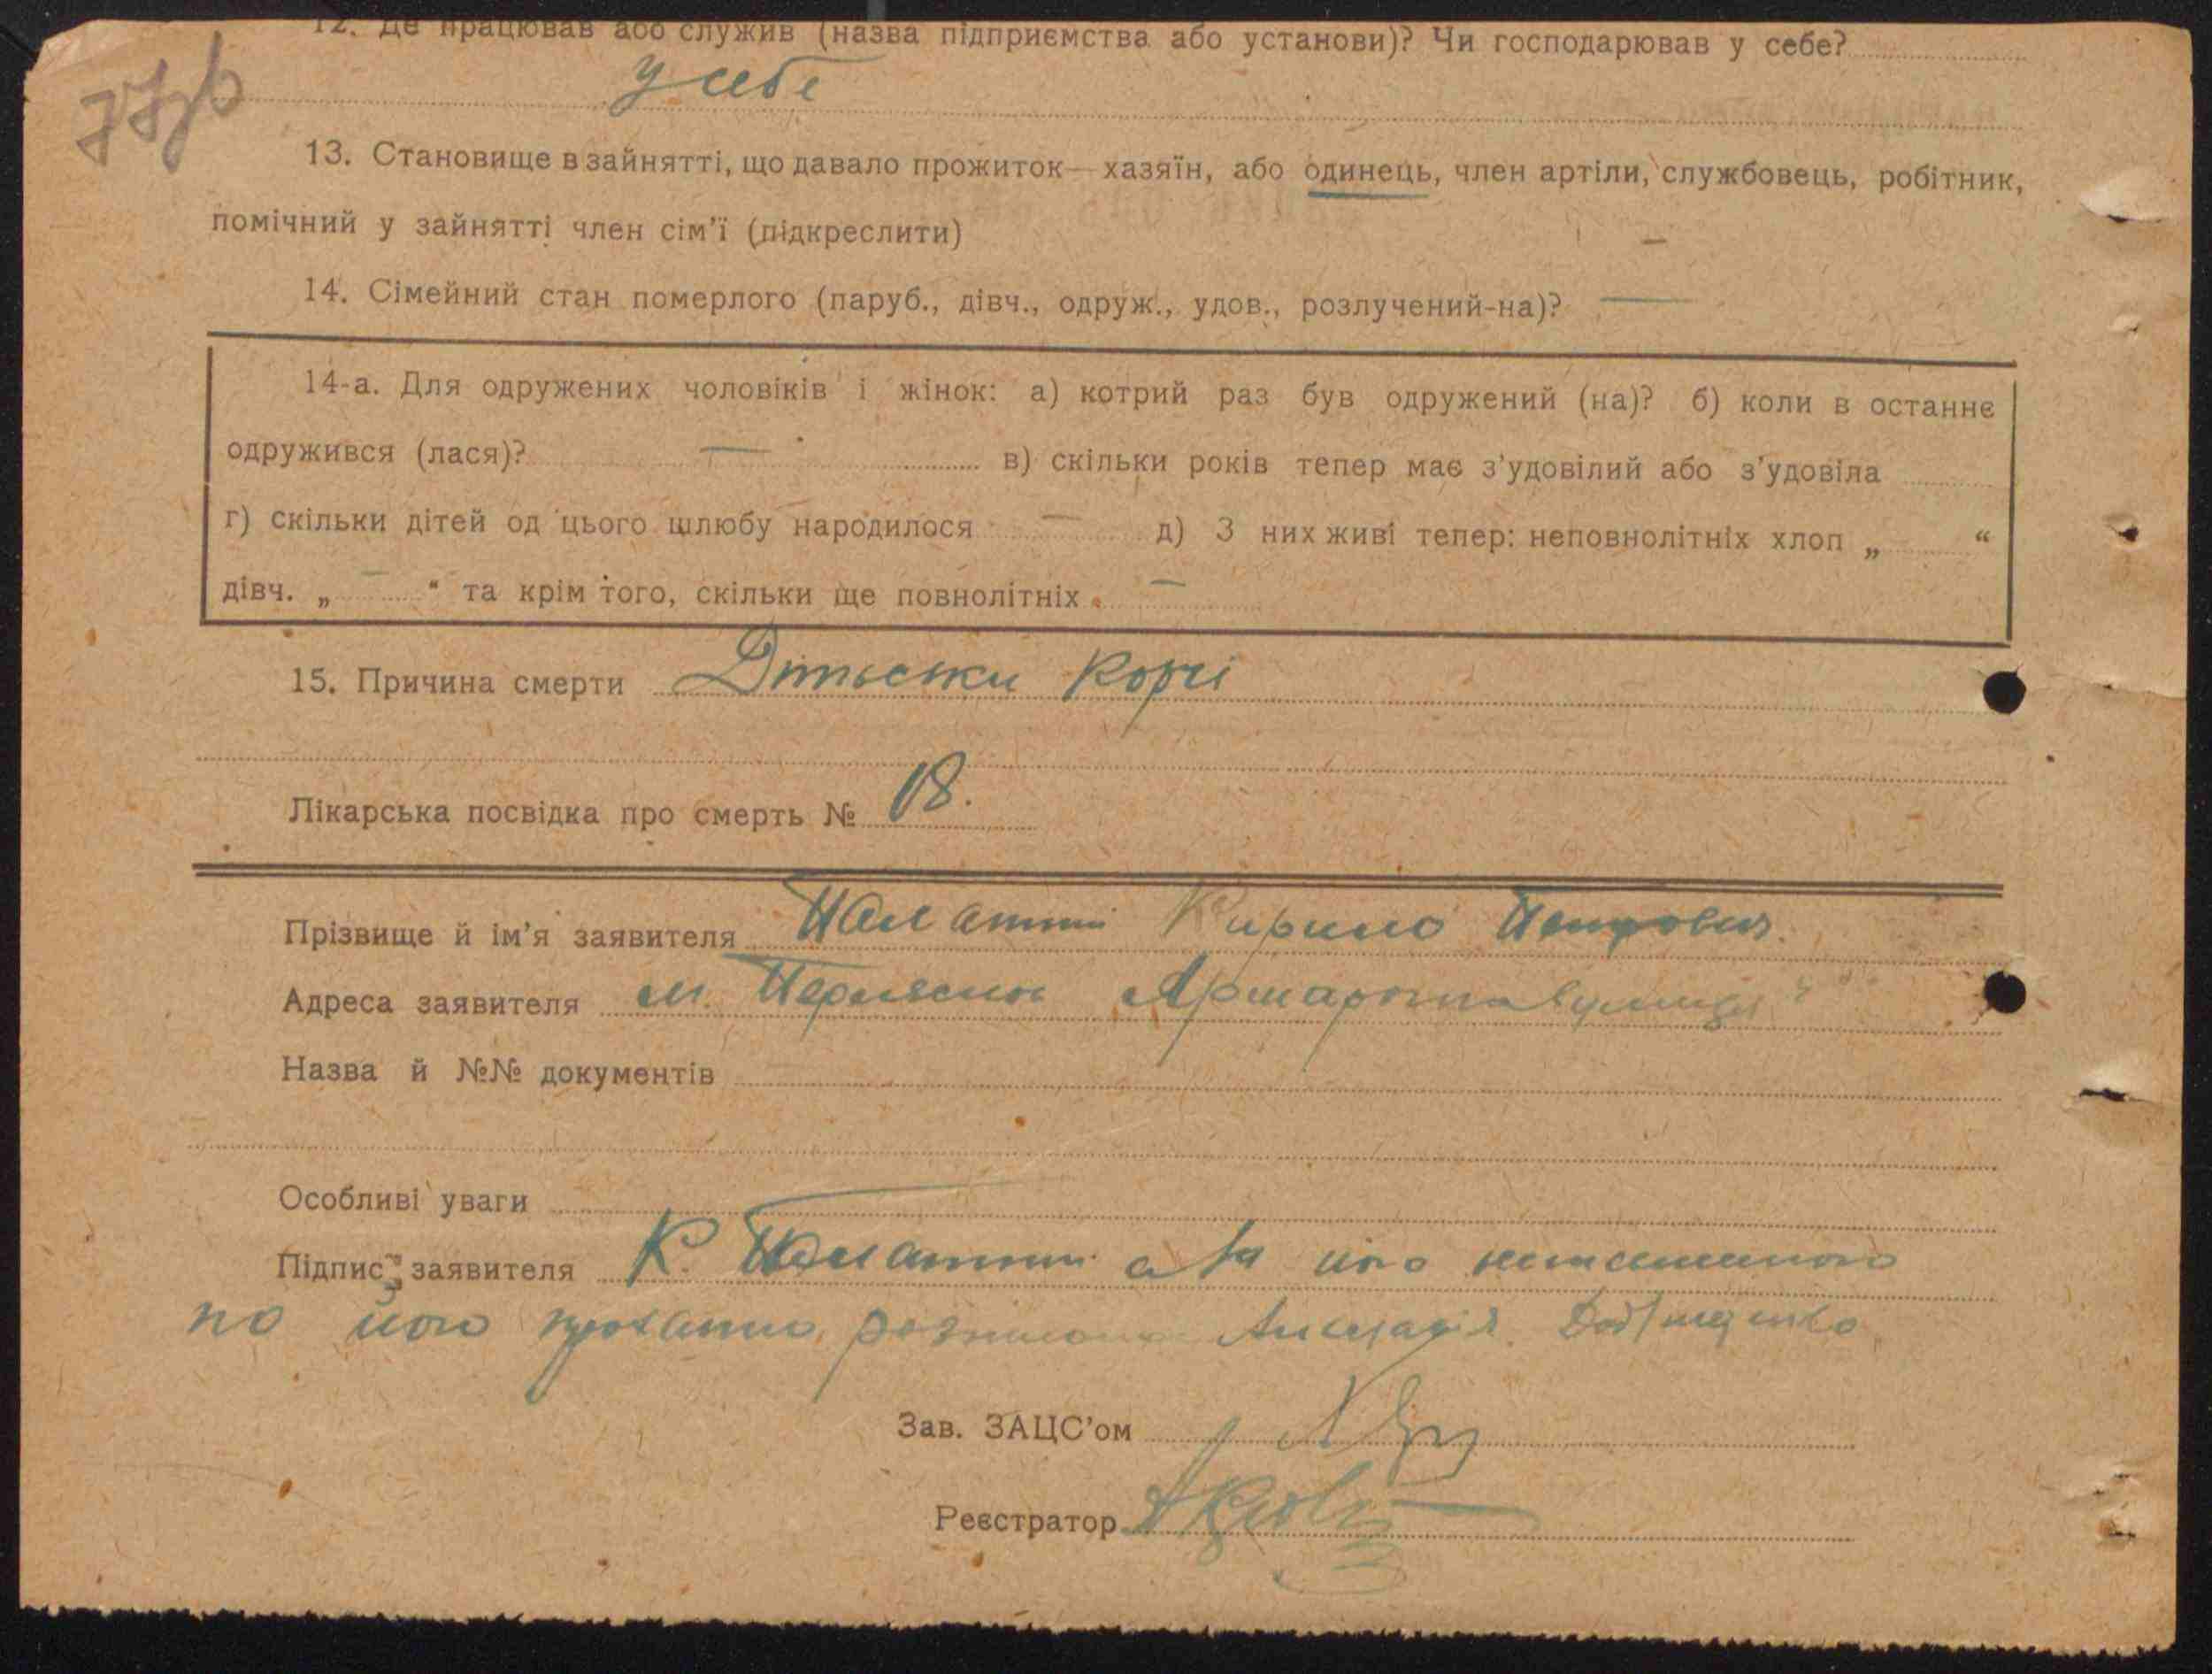 12. Де працював або служив (назва підприємства або установи)? Чи господарював у себе?
у себе
13. Становище в зайнятті, що давало прожиток — хазяїн, або одинець, член артіли, службовець, робітник,
помічний у зайнятті член сім'ї (підкреслити) —
14. Сімейний стан померлого (паруб., дівч., одруж., удов., розлучений-на)? —
14-а. Для одружених чоловіків і жінок: а) котрий раз був одружений (на)? б) коли в останнє
одружився (лася)? — в) скільки років тепер має з'удовілий або з'удовіла
г) скільки дітей од цього шлюбу народилося — д) З них живі тепер: неповнолітніх хлоп „ “
дівч. „ — “ та крім того, скільки ще повнолітніх —
15. Причина смерти Дитьски Корчі
Лікарська посвідка про смерть № 18.
Прізвище й ім'я заявителя Кирило Петрович
Адреса заявителя м. вулиця
Назва й №№ документів
Особливі уваги
Підпис заявителя К. а за його неписьменного
по його проханню
Зав. ЗАЦС'ом
Реєстратор